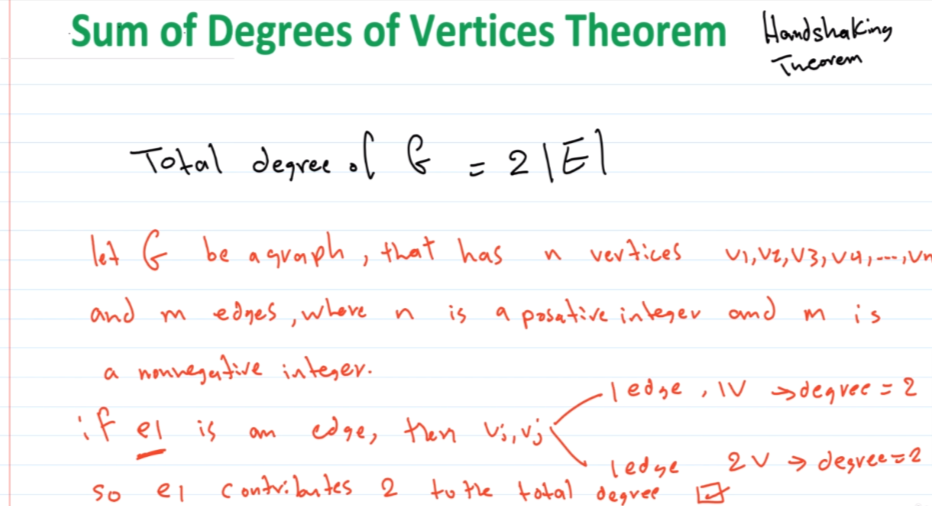 Sum of Degrees of Vertices Theorem Handshaking
Theorem
Total degree of G = 2|E|
let G be a graph, that has n vertices v1,v2,v3,v4,---,vn
and m edges, where n is a posative integer and m is
a nonnegative integer.
1 edge, 1V → degree = 2
if e1 is an edge, then vi,vj
1 edge 2V → degree = 2
so e1 contributes 2 to the total degree